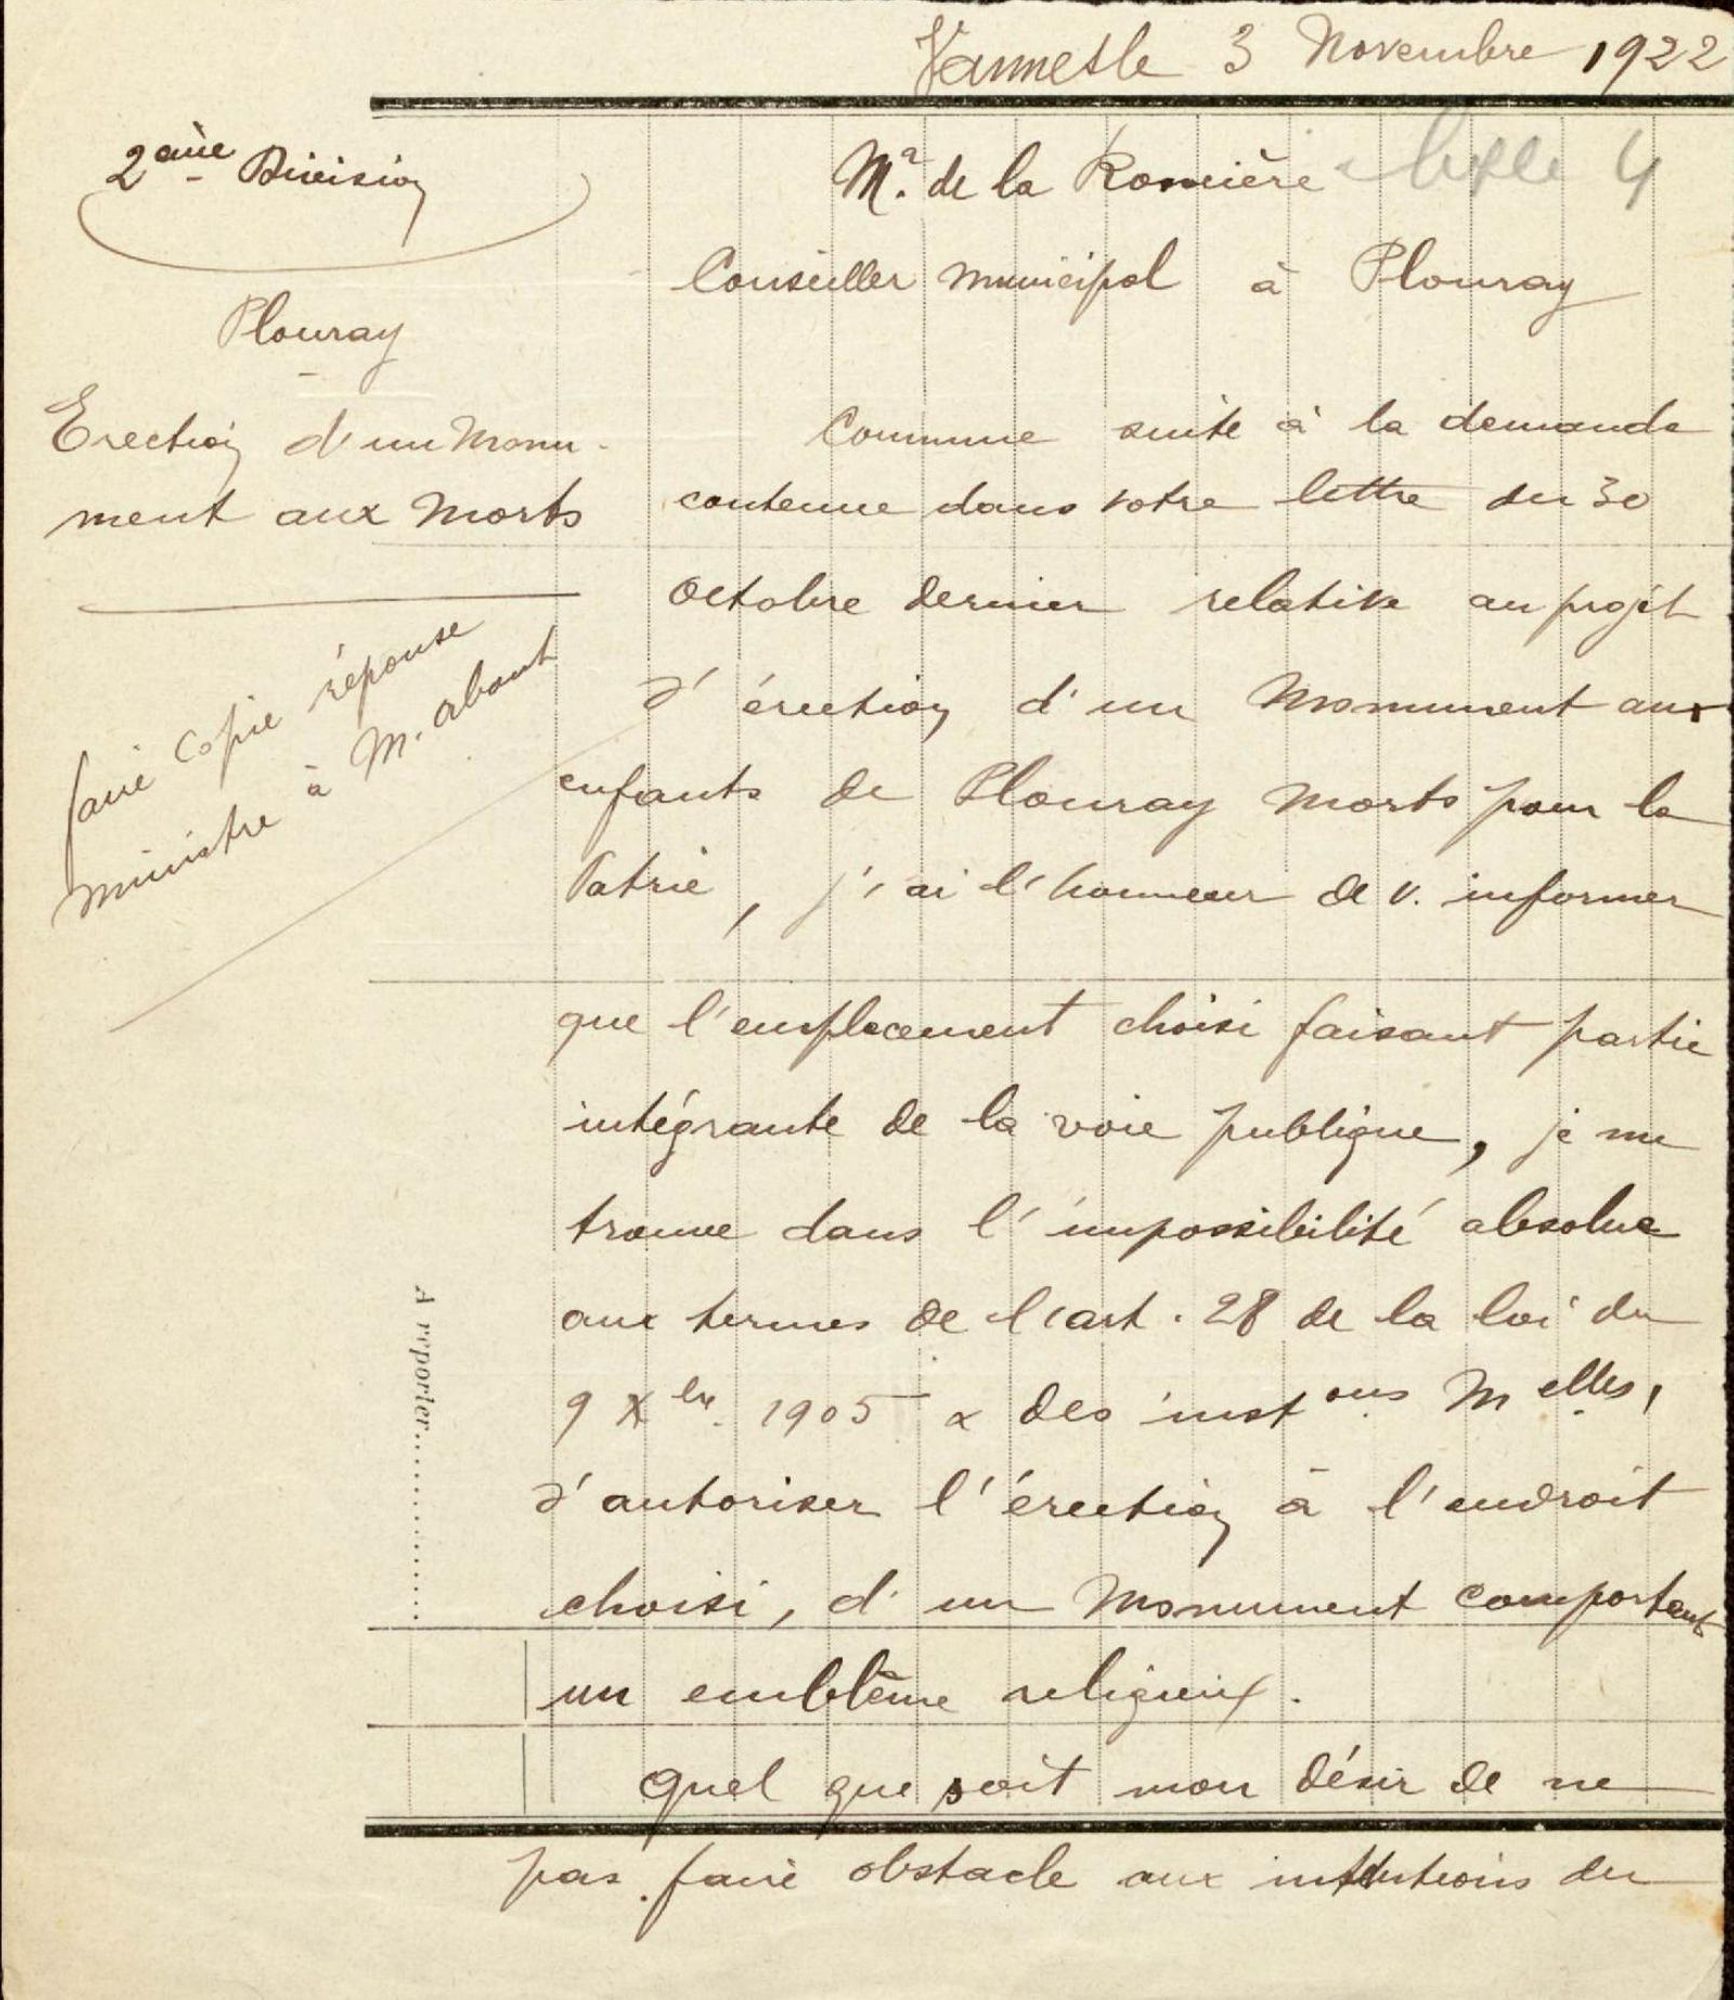 Vannes le 3 Novembre 1922
2ème Division
Plouray
Erection d'un Monu-
ment aux Morts
faire copie réponse
ministre à M.
Mr. de la
4
Conseiller Municipal à Plouray
Comme suite à la demande
contenue dans votre lettre du 30
Octobre dernier relative au projet
d'érection d'un Monument aux
enfants de Plouray Morts pour la
Patrie, j'ai l'honneur de v. informer
que l'emplacement choisi faisant partie
intégrante de la voie publique, je me
trouve dans l'impossibilité absolue
aux termes de l'art. 28 de la loi du
9 Xbre. 1905 & des instons Melles,
d'autoriser l'érection à l'endroit
choisi, d'un Monument comportant
un emblême religieux.
Quel que soit mon désir de ne
pas faire obstacle aux intentions du
A reporter